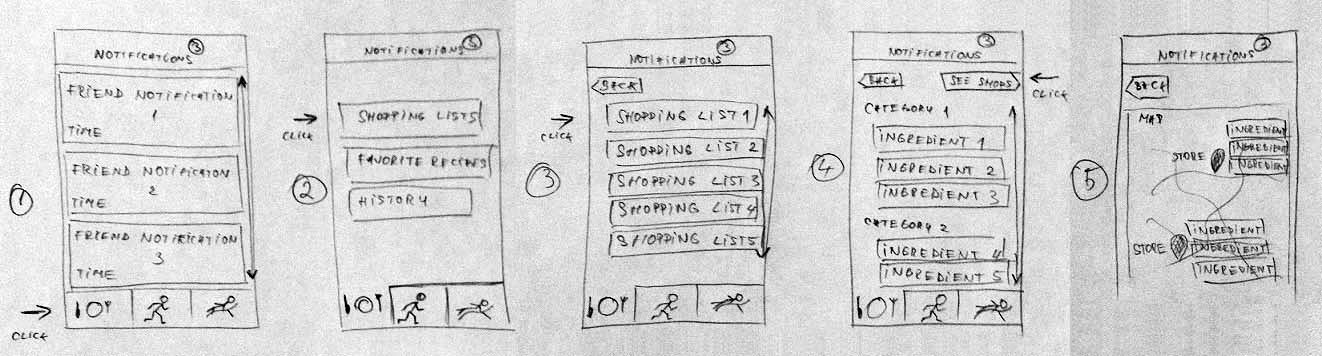 NOTIFICATIONS 3
FRIEND NOTIFICATION
1
TIME
FRIEND NOTIFICATON
2
TIME
FRIEND NOTIFICATION
3
TIME
1
CLICK
NOTIFICATIONS 3
CLICK
SHOPPING LISTS
FAVORITE RECIPES
HISTORY
2
NOTIFICATIONS 3
BACK
CLICK
SHOPPING LIST 1
SHOPPING LIST 2
SHOPPING LIST 3
SHOPPING LIST 4
SHOPPING LIST 5
3
NOTIFICATIONS 3
BACK
SEE SHOPS
CLICK
CATEGORY 1
INGREDIENT 1
INGREDIENT 2
INGREDIENT 3
CATEGORY 2
INGREDIENT 4
INGREDIENT 5
4
NOTIFICATIONS 3
BACK
MAP
INGREDIENT
INGREDIENT
INGREDIENT
STORE
INGREDIENT
INGREDIENT
INGREDIENT
STORE
5